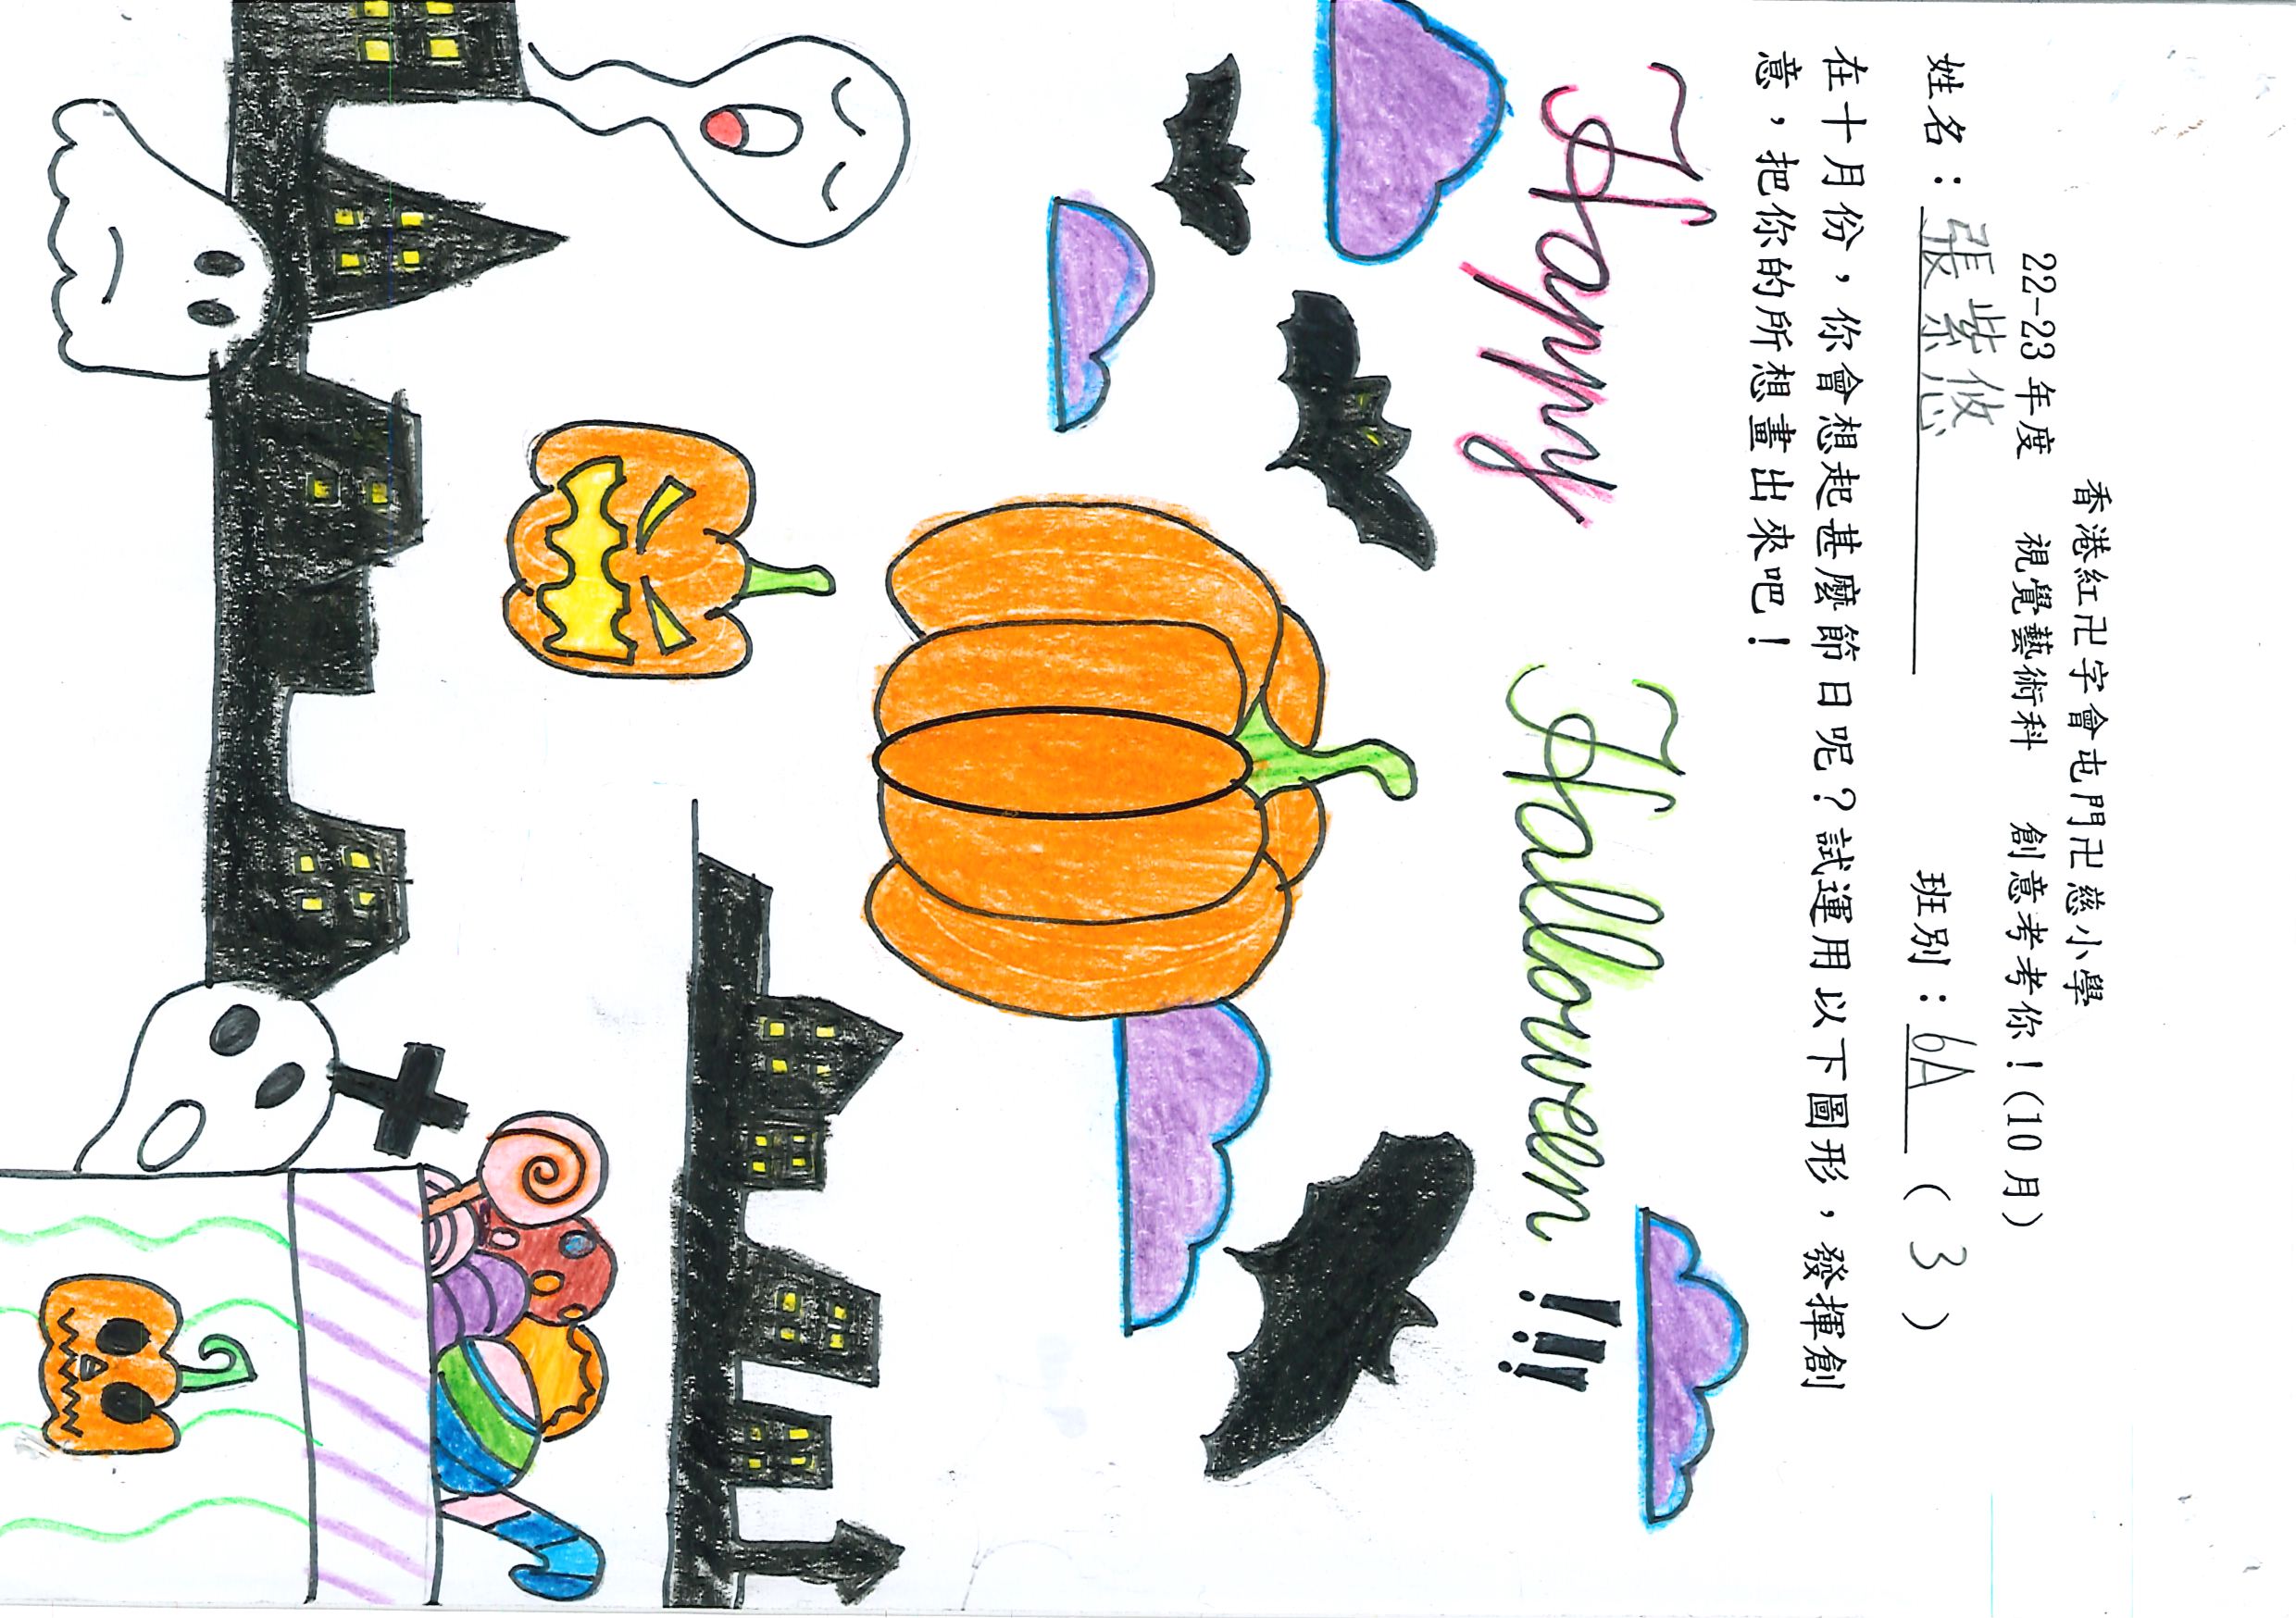 香港紅卍字會屯門卍慈小學
22-23年度 視覺藝術科 創意考考你！(10月)
姓名：張紫悠 班別：6A ( 3 )
在十月份，你會想起甚麼節日呢？試運用以下圖形，發揮創
意，把你的所想畫出來吧！
Happy Halloween !!!